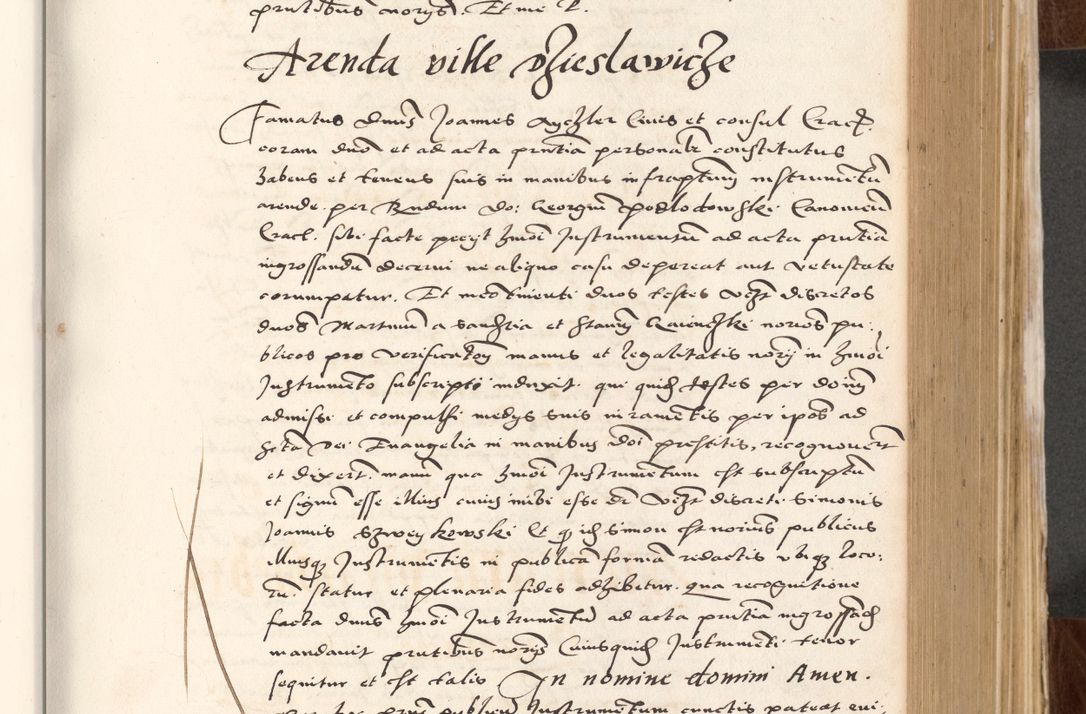 prntibus norys. Et me P.
Arenda ville Dzieslawicze
Famatus dnus Joannes Aychler Civis et consul Crac.
coram dno et ad acta prntia personalr constitutus
habens et tenens suis in manibus infrascriptum instrumentu
arende per Rndum do: Georgiu Podlodowski Canonicu
Crac. sibi facte peeyt hmoi Instrumentu ad acta prntia
ingrossandu decerni ne aliquo casu depereat aut vetustate
corrumpatur. Et duos testes vzt discretos
dnos Martinu a et Stanisl norios pu-
blicos pro verificatoe manus et legalitatis norij in hmoi
Instrumento subscripti induxit. qui quid testes per dnum
admissi et compulsi medys suis iuramentis per ipos ad
scta Dei Evangelia in manibus doi prestitis, recognoverut
et dixerut. manu qua hmoi Instrumentum est subscriptu
et signu esse illius cuius inibi esse dr vzt discreti Simonis
Joannis Szweykowski Et q ide Simon est norius publicus
Illiusq Instrumentis in publica forma redactis ubiq loco-
ru. statur et plenaria fides adhibetur. qua recognitione
facta dnus hmoi Instrumentu ad acta prntia ingrossari
mandavit prntibus norys Cuiusquid Instrumenti tenor
sequitur et est talis In nomine domini Amen.
hoc prns publicu Instrumentum cunctis pateat evi-